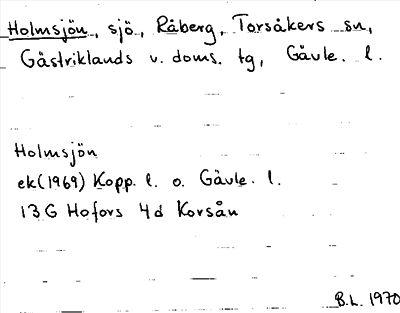 Holmsjön, sjö, Råberg, Torsåkers sn,
Gästriklands v. doms. tg, Gävle. l.
Holmsjön
ek(1969) Kopp. l. o. Gävle. l.
13G Hofors 4d Korsån
B.L. 1970